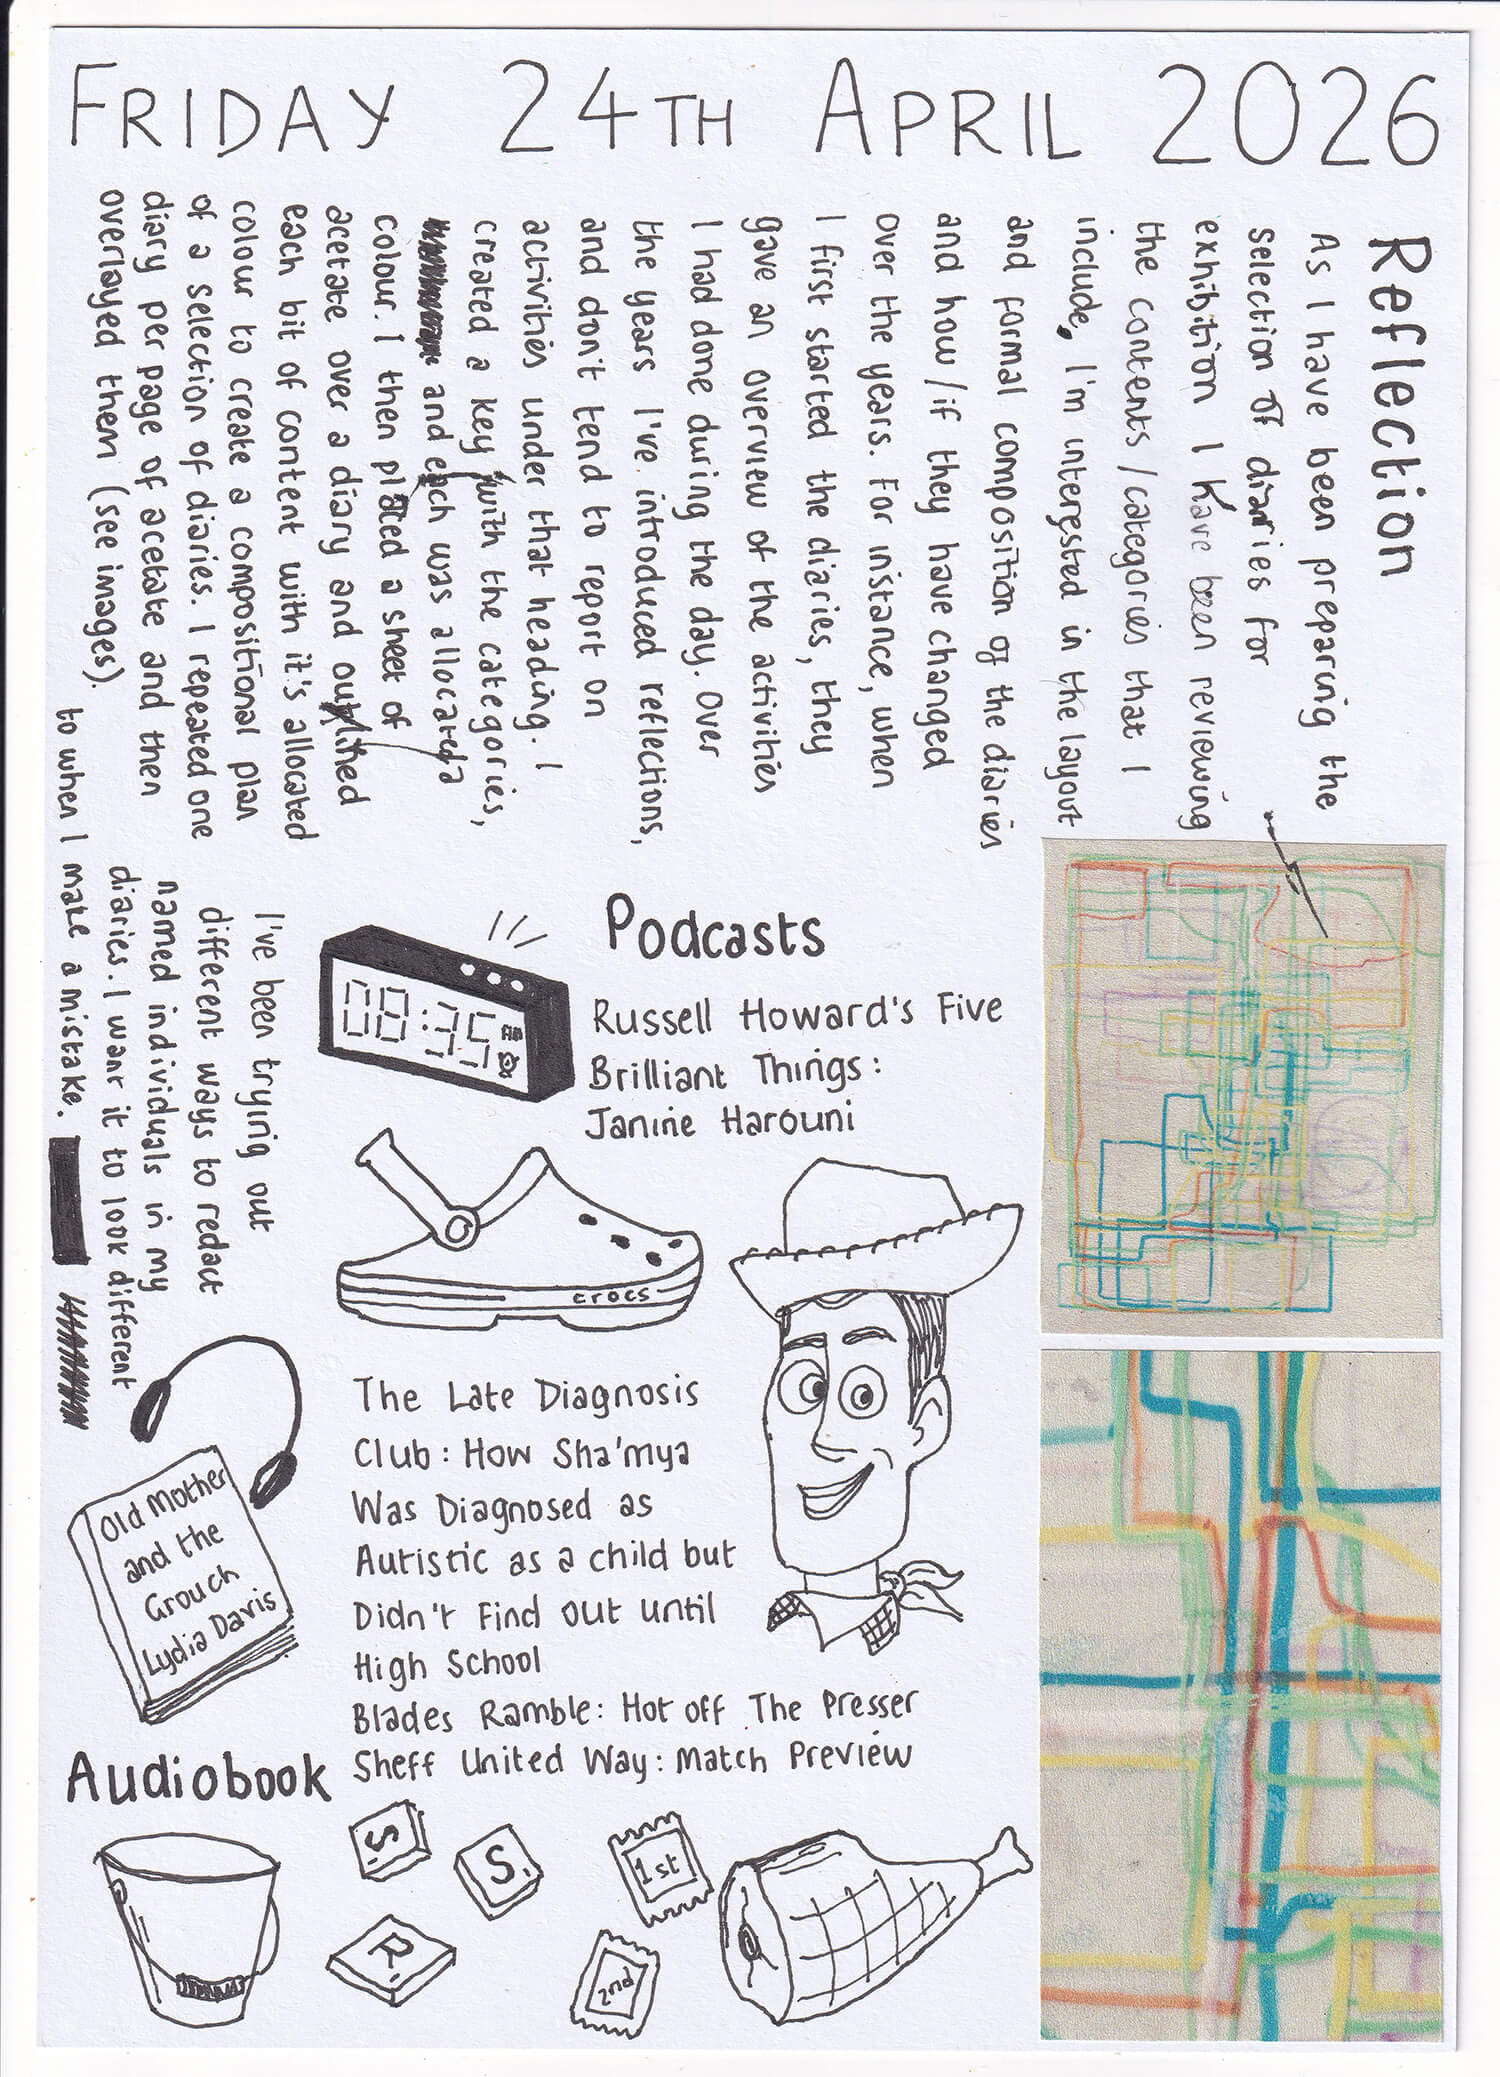 FRIDAY 24TH APRIL 2026
Reflection
As I have been preparing the
selection of diaries for
exhibition I have been reviewing
the contents/categories that I
include, I'm interested in the layout
and formal composition of the diaries
and how/if they have changed
over the years. For instance, when
I first started the diaries, they
gave an overview of the activities
I had done during the day. Over
the years I've introduced reflections,
and don't tend to report on
activities under that heading. I
created a key with the categories,
and each was allocated a
colour. I then placed a sheet of
acetate over a diary and outlined
each bit of content with it's allocated
colour to create a compositional plan
of a selection of diaries. I repeated one
diary per page of acetate and then
overlayed them (see images).
I've been trying out
different ways to redact
named individuals in my
diaries. I want it to look different
to when I make a mistake.
Podcasts
08:35 AM
Russell Howard's Five
Brilliant Things:
Janine Harouni
crocs
The Late Diagnosis
Club: How Sha'mya
Was Diagnosed as
Autistic as a child but
Didn't Find out until
High School
Blades Ramble: Hot off The Presser
Sheff United Way: Match Preview
Old Mother
and the
Grouch
Lydia Davis
Audiobook
S
S
R
1st
2nd